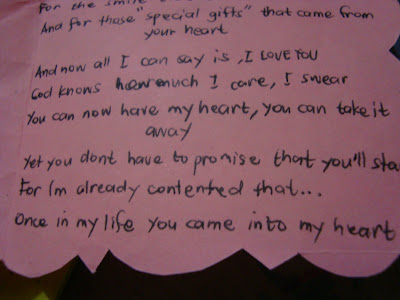 For the smile
And for those "special gifts" that came from
your heart
And now all I can say is, I LOVE YOU
God knows how much I care, I swear
You can now have my heart, you can take it
away
Yet you dont have to promise that you'll sta
For I'm already contented that...
Once in my life you came into my heart